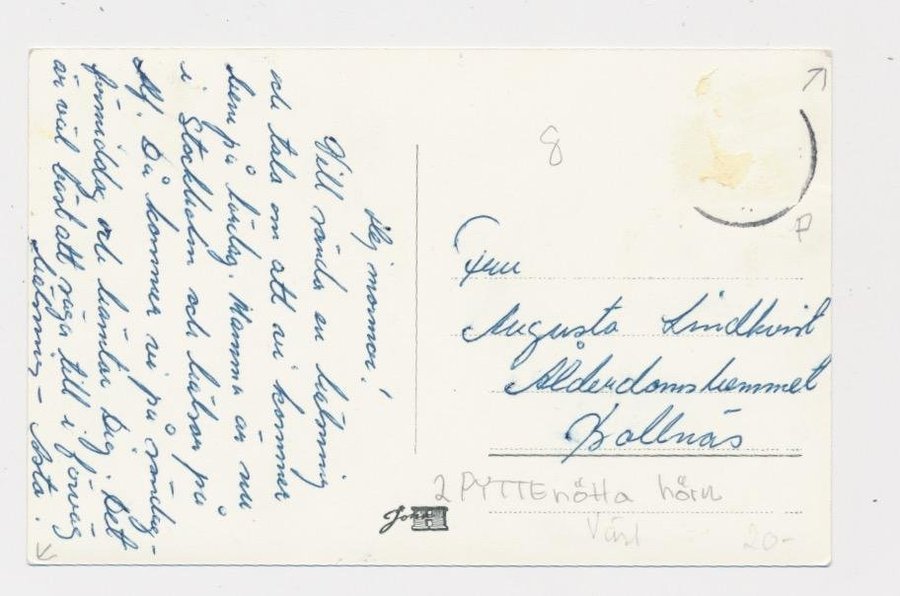 Hej mormor!
Vill sända en hälsning
och tala om att vi kommer
hem på lördag. Mamma är nu
i Stockholm och hälsar på
Alf. Då kommer vi på söndag-
förmiddag och hämtar Dig. Det
är väl bäst att säga till i förväg
Hälsning – Asta.
8
P
Fru
Augusta Lindkvist
Ålderdomshemmet
Bollnäs
2 PYTTEnötta hörn
20-